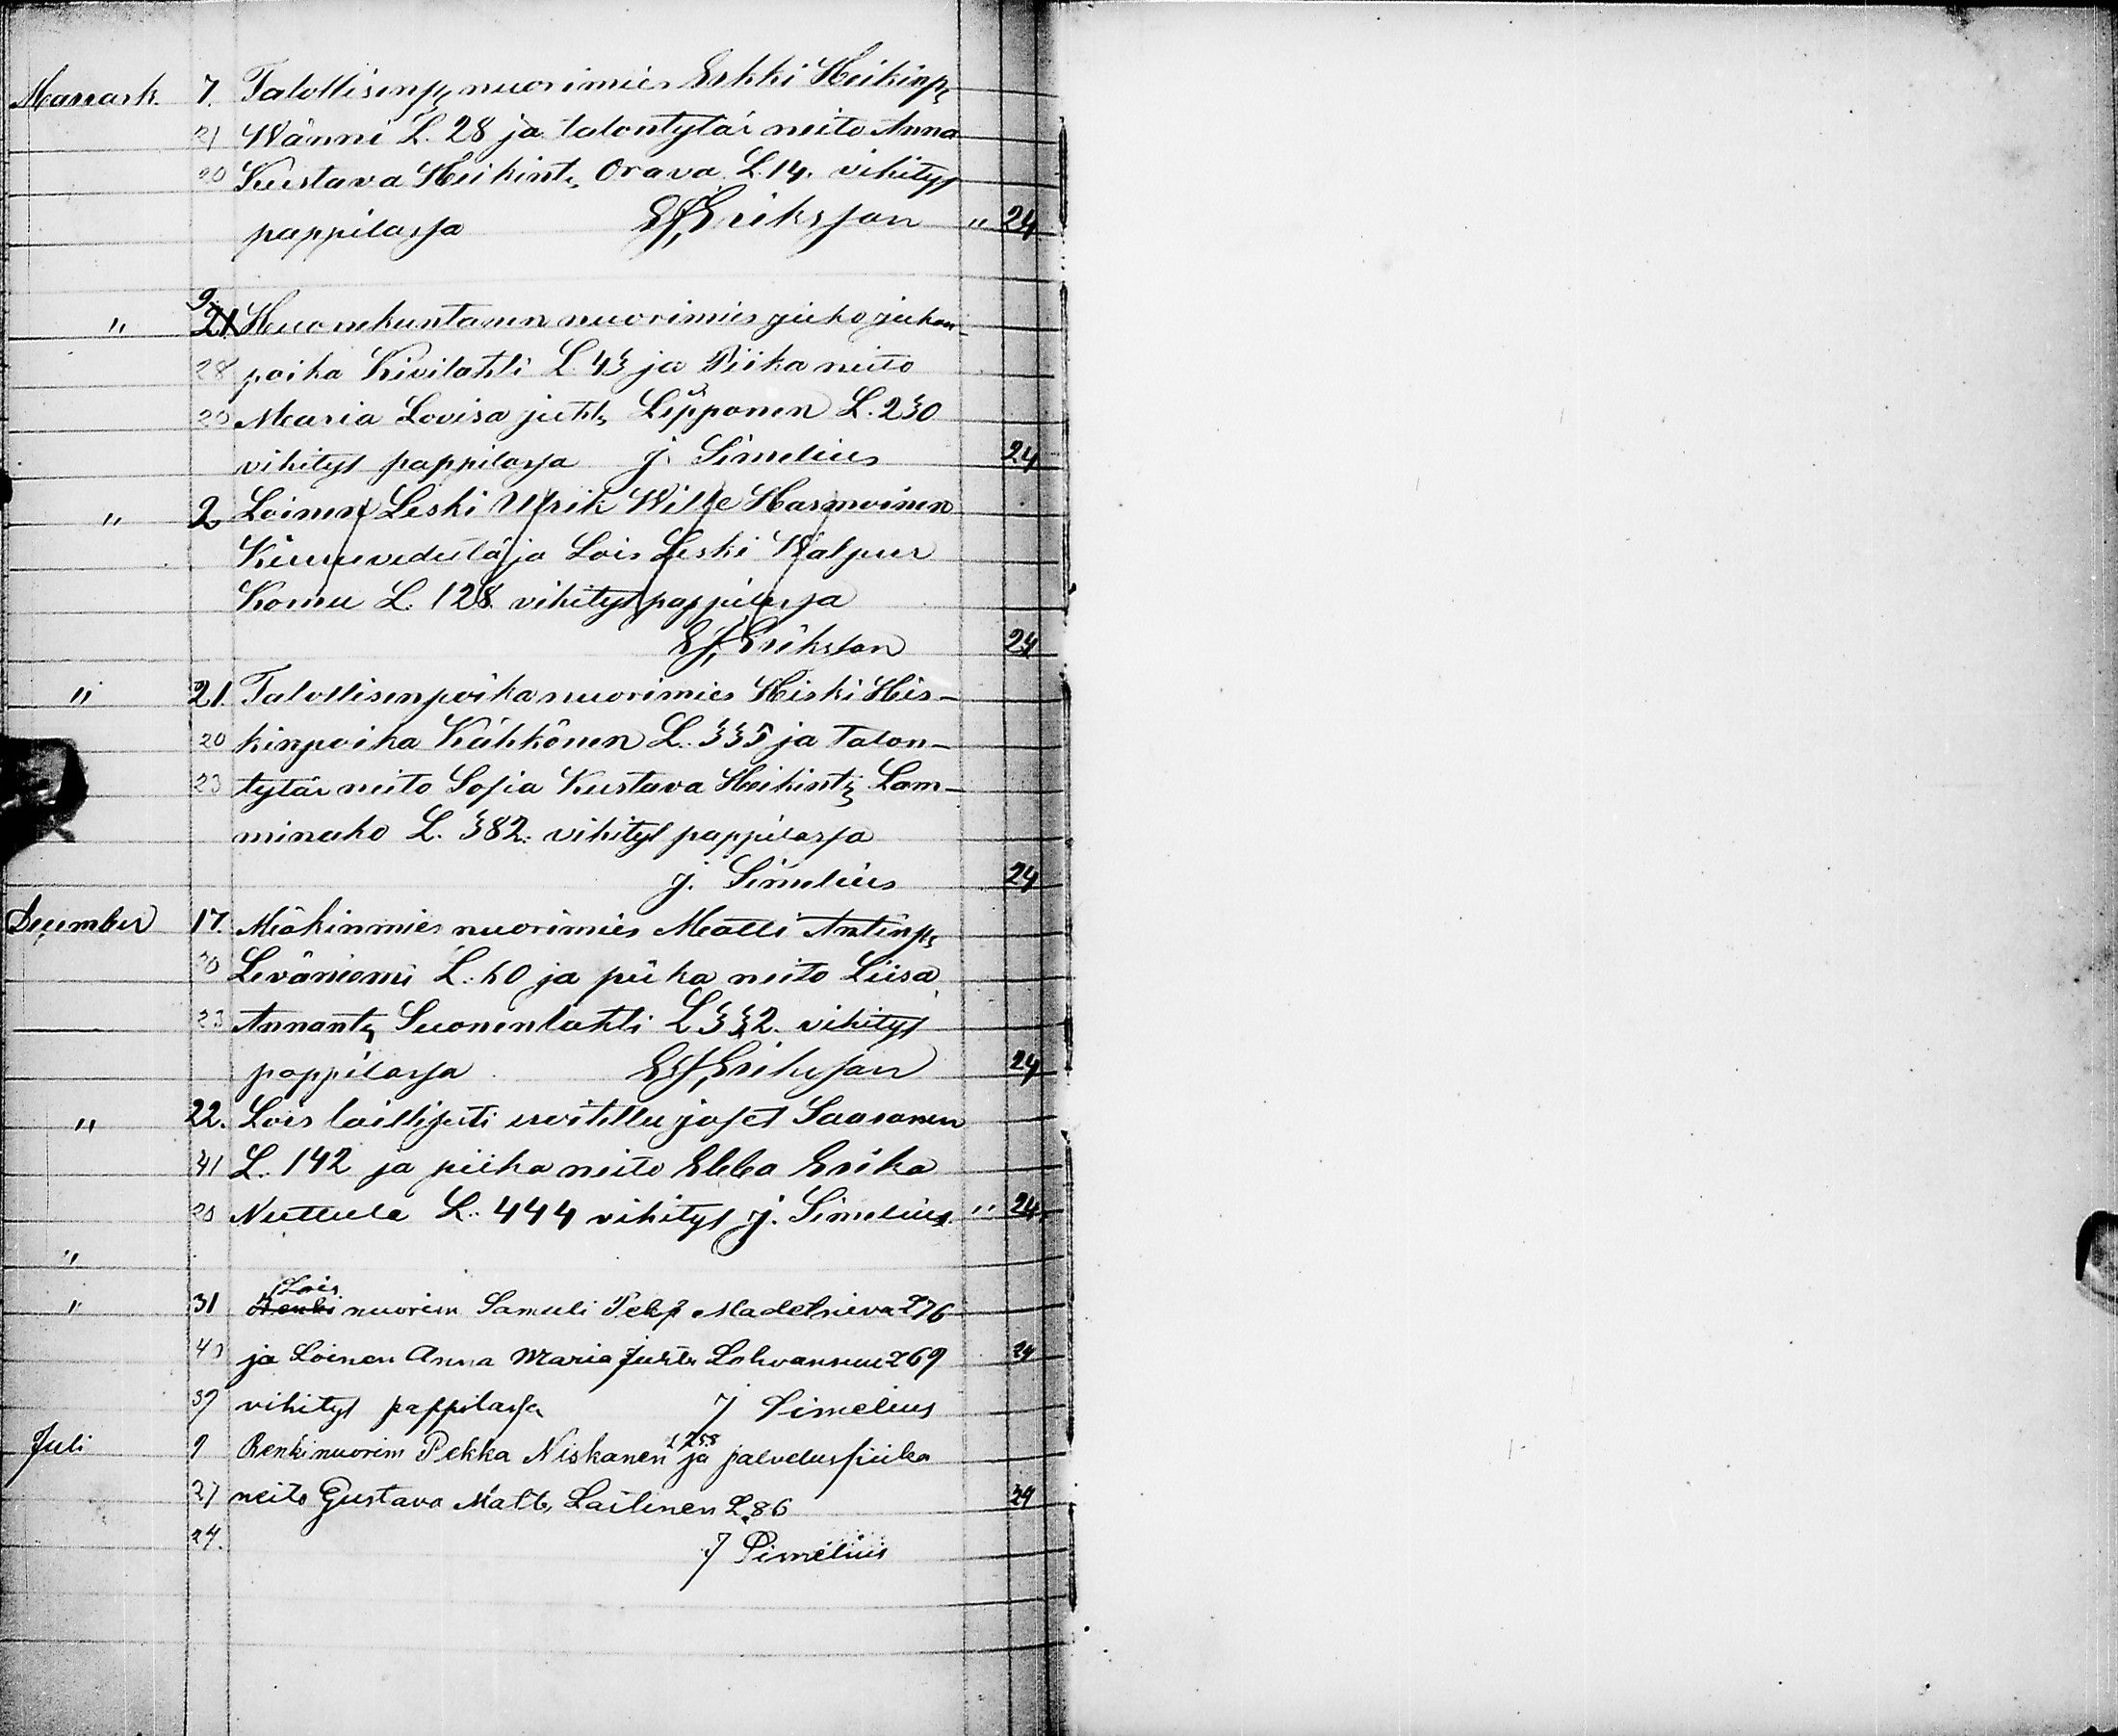 Marrask. 7. Talollisenp. nuorimies Erkki Heikinp.
21 Wänni L. 28 ja talontytär neito Anna
20 Kustava Heikint. Orava L. 14. vihityt
pappilassa Eriksson " 24
" 9 21. Huonekuntanen nuorimies Juho Juhon-
28 poika Kivilahti L. 43 ja Piika neito
20 Maria Lovisa Juht. Lipponen L. 230
vihityt pappilassa J. Simelius 24
" 2 Loinen Leski Ulrik Wille Harmoinen
ja Lois Leski Walpur
Komu L. 128. vihityt pappilassa
Eriksson 24
" 21. Talollisenpoika nuorimies Hiski His-
20 kinpoika Kähkönen L. 335 ja talon-
23 tytär neito Sofia Kustava Heikint. Lam-
minaho L. 382. vihityt pappilassa
J. Simelius 24
December 17. Mäkinmies nuorimies Matti Antinp.
20 Leväniemi L. 60 ja piika neito Liisa
23 Annant. Suonenlahti L 332. vihityt
pappilassa Eriksson 24
" 22. Lois laillisesti eroitettu Josef Saasonen
41 L. 142 ja piika neito Ebba Erika
20 Nuttula L. 444 vihityt J. Simelius. " 24
"
" 31 Lois Renki nuorim Samuli Pekp 276
40 ja Loinen Anna Maria Juht. 269 24
39 vihityt pappilassa J Simelius
Juli 9 Renki nuorim Pekka Niskanen L 258 ja palveluspiika
27 neito Gustava Matt. Laitinen L 86 24
24. J Simelius